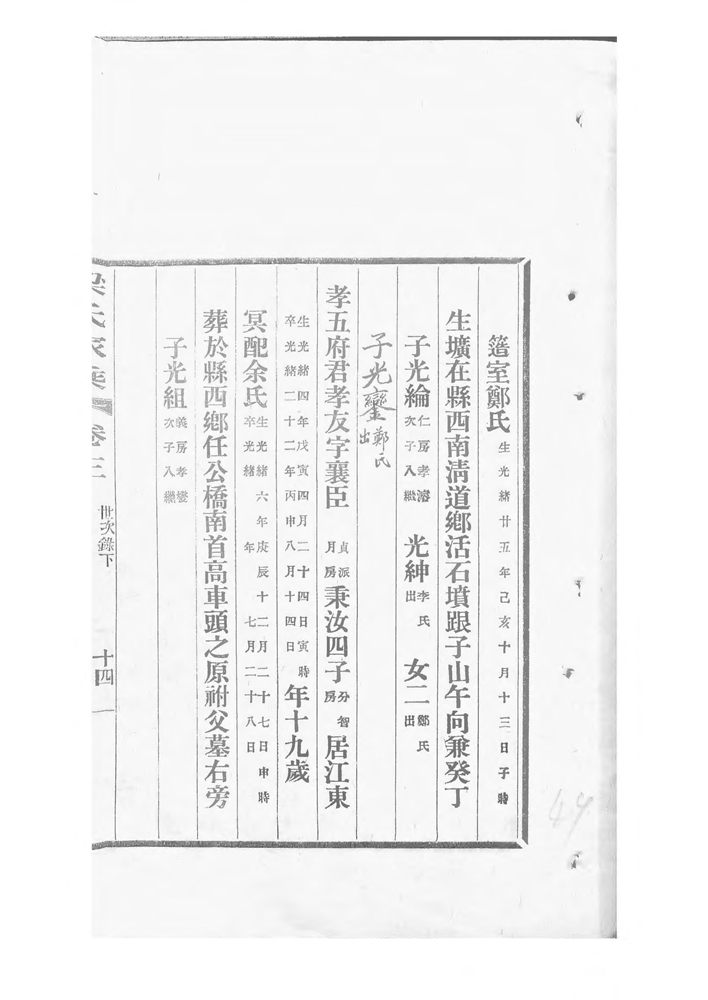 簉室鄭氏生光緒廿五年己亥十月十三日子時
生壙在縣西南清道鄉活石墳跟子山午向兼癸丁
子光綸仁房孝濬次子入繼 光紳李氏出 女二鄭氏出
子光鑾鄭氏出
孝五府君孝友字襄臣貞派月房秉汝四子分智房居江東
生光緒四年戊寅四月二十四日寅時卒光緒二十二年丙申八月十四日年十九歲
冥配余氏生光緒六年庚辰十二月二十七日申時卒光緒 年 七月二十八日
葬於縣西鄉任公橋南首高車頭之原祔父墓右旁
子光組義房孝 次子入繼
梁氏家乘 卷三 世次錄下 十四
49